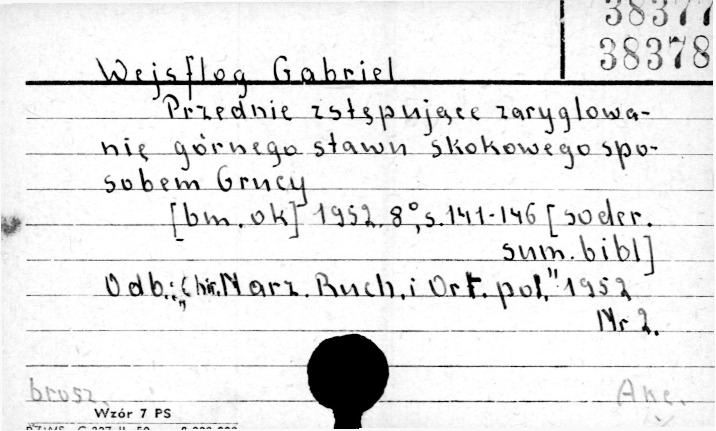 38377
38378
Wejsflog Gabriel
Przednie zstępujące zaryglowa-
nię górnego stawu skokowego spo-
sobem Grucy
[bm. ok] 1952. 8°, s. 141-146 [soder.
sum. bibl]
Odb.: „Chir. Narz. Ruch. i Ort. pol." 1952
Nr 2.
brosz. Akc.
Wzór 7 PS